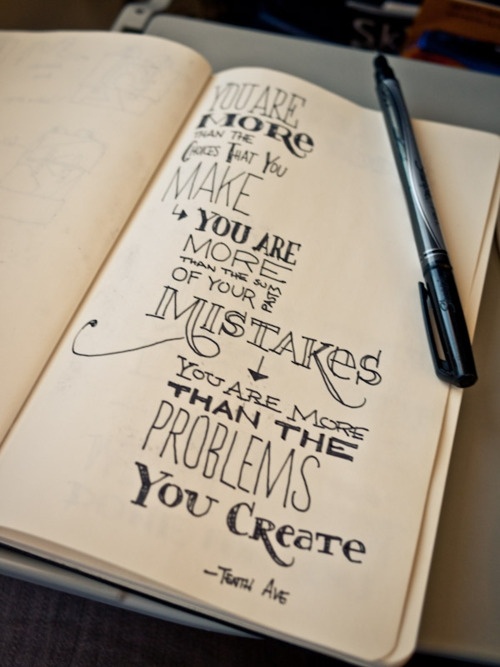 Sk
YOU ARE
MORE
THAN THE
CHOICES THAT YOU
MAKE
↳ YOU ARE
MORE
THAN THE SUM
OF YOUR PAST
MISTAKES
↓
YOU ARE MORE
THAN THE
PROBLEMS
YOU CREATE
—TENTH AVE